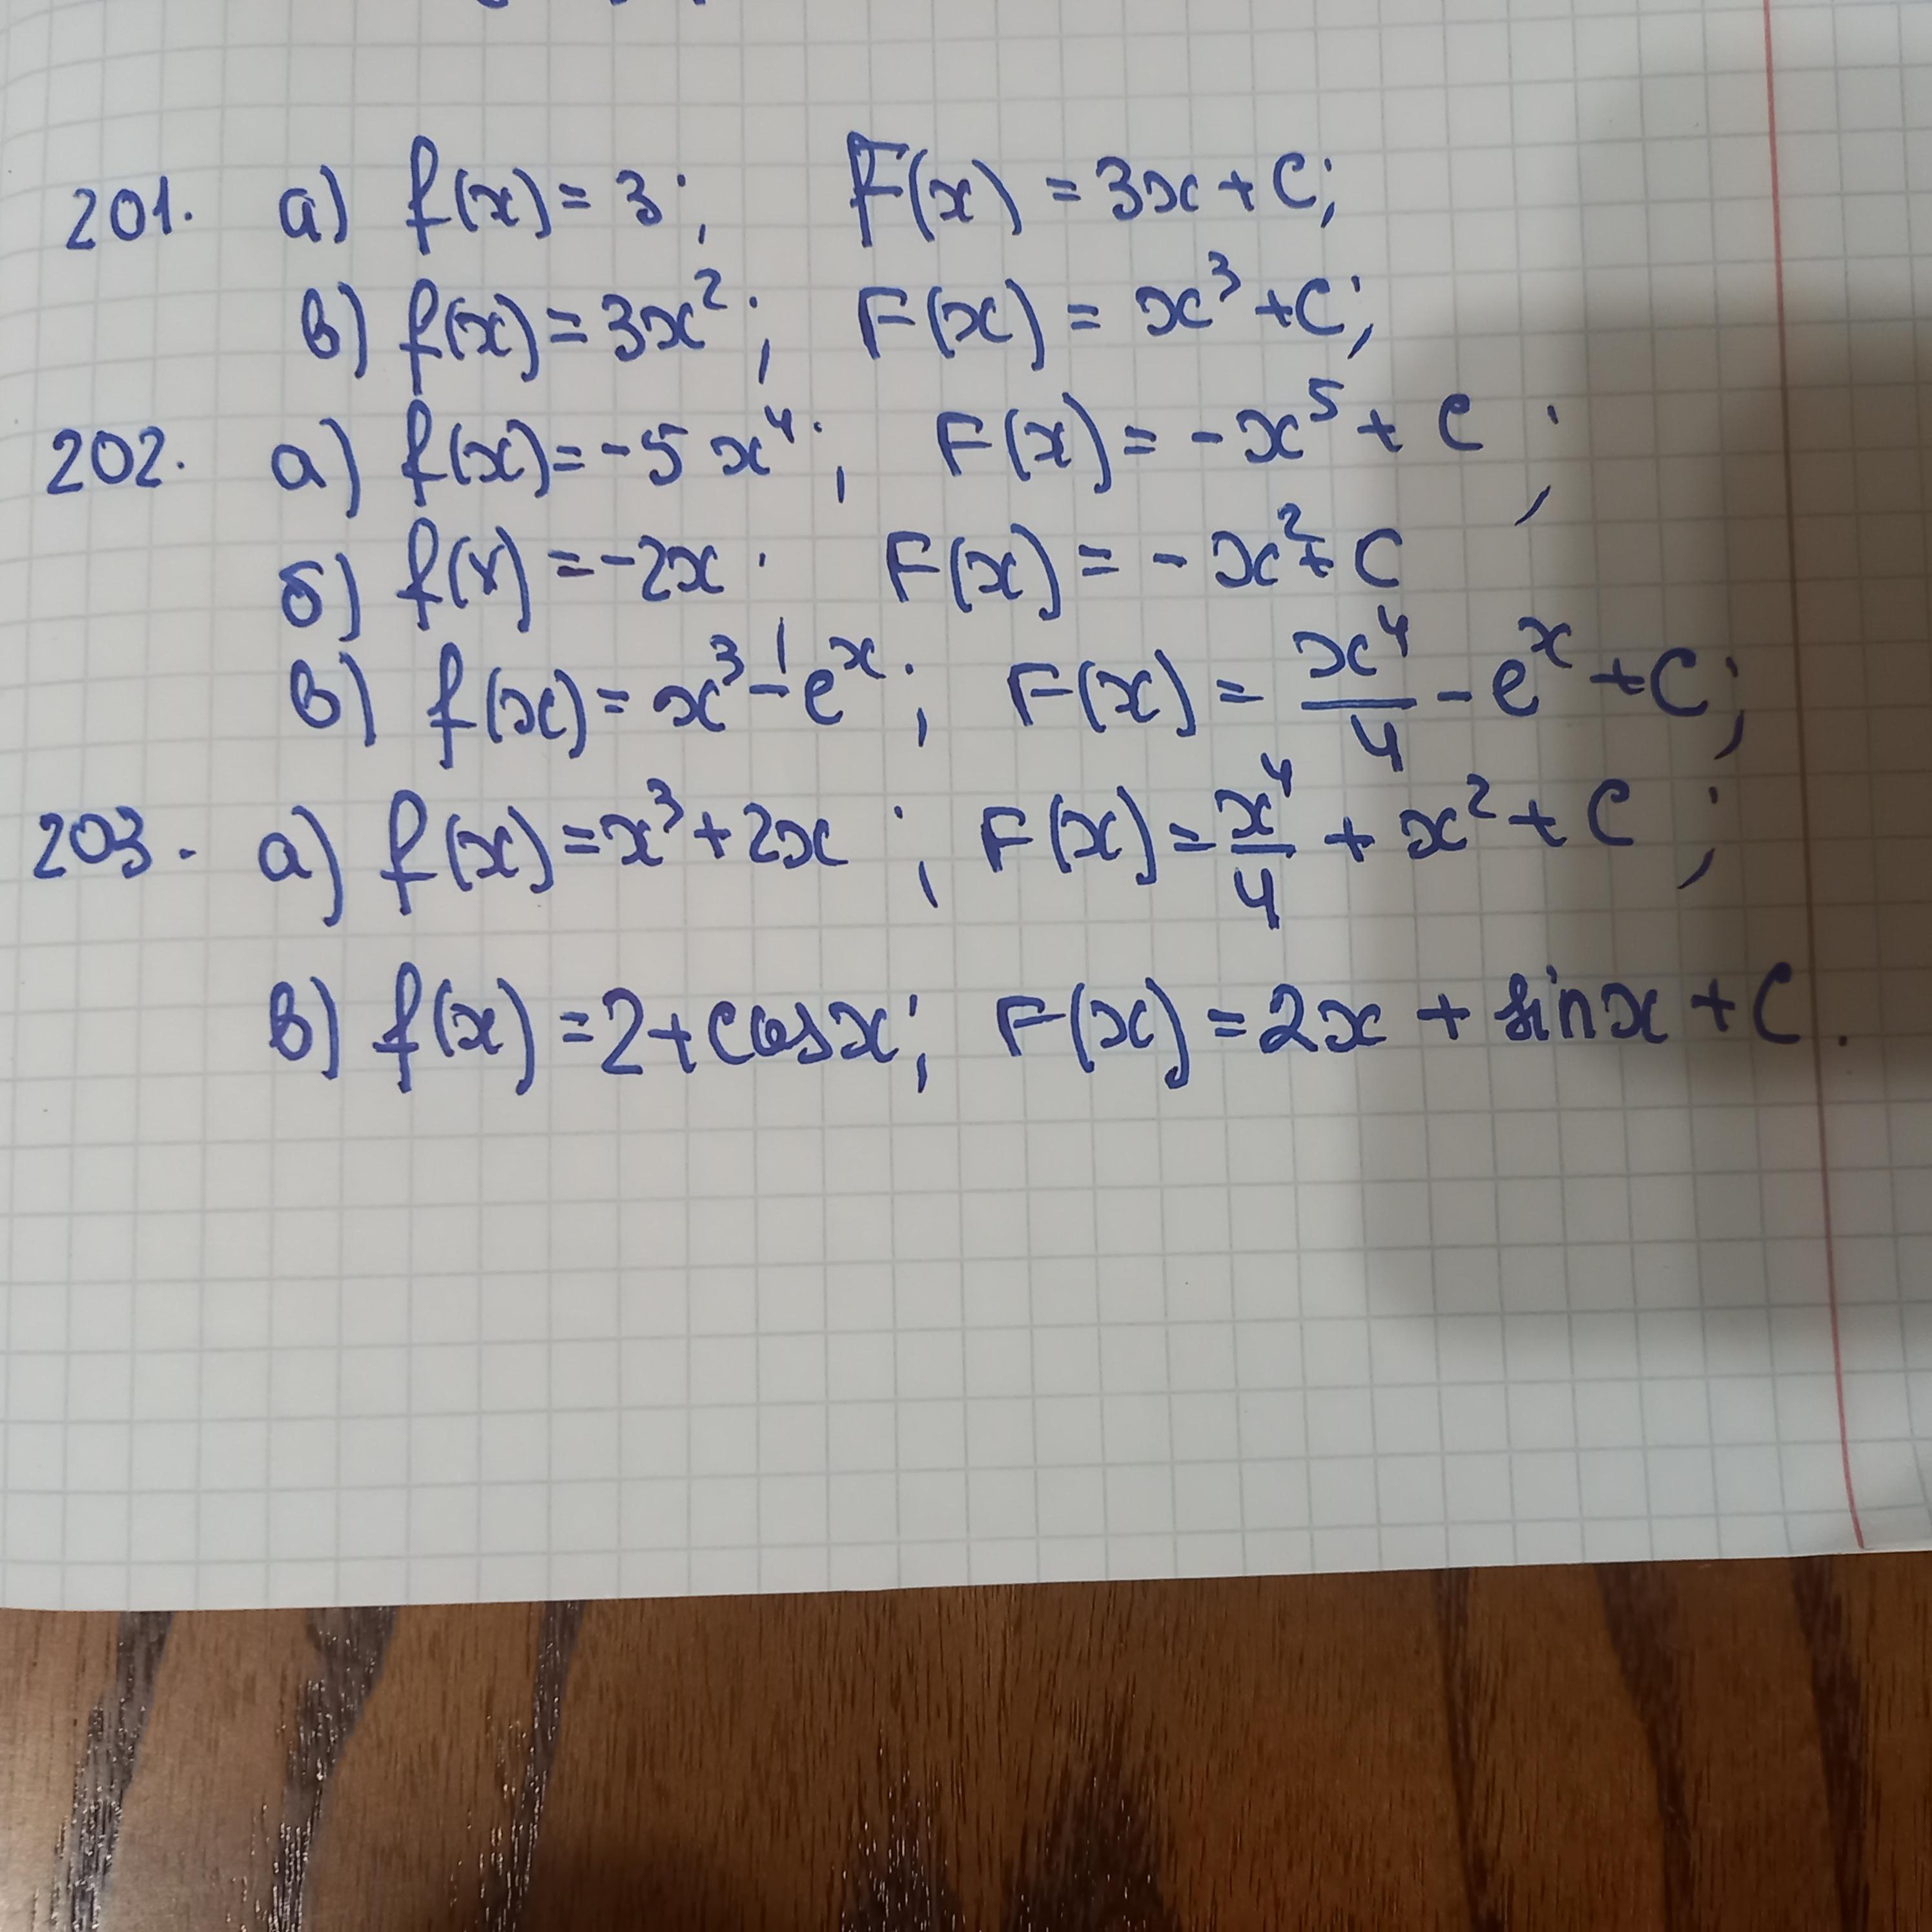 201. а) f(x) = 3; F(x) = 3x + C;
в) f(x) = 3x²; F(x) = x³ + C;
202. а) f(x) = -5x⁴; F(x) = -x⁵ + C;
б) f(x) = -2x. F(x) = -x² + C
в) f(x) = x³ - eˣ; F(x) = x⁴/4 - eˣ + C;
203. а) f(x) = x³ + 2x; F(x) = x⁴/4 + x² + C;
в) f(x) = 2 + cosx; F(x) = 2x + sinx + C.